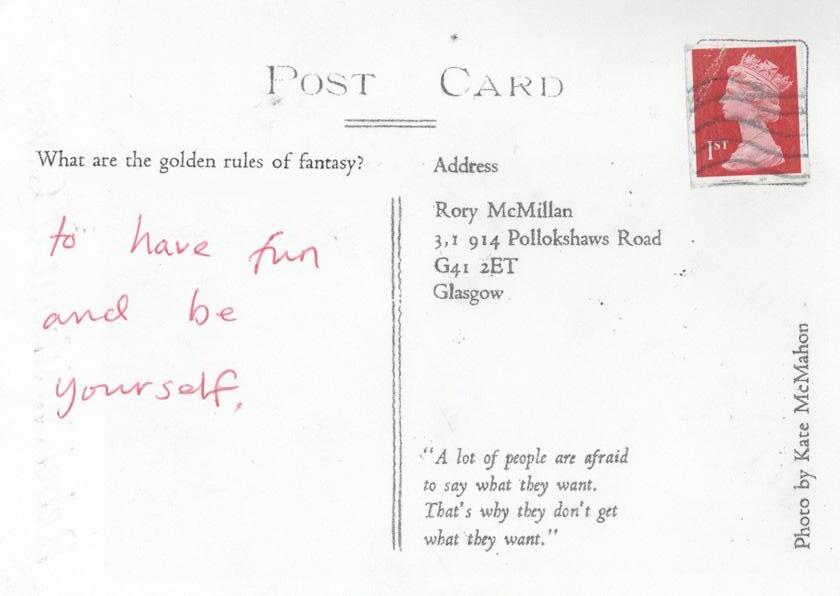 POST CARD
What are the golden rules of fantasy?
to have fun
and be
yourself.
1ST
Address
Rory McMillan
3,1 914 Pollokshaws Road
G41 2ET
Glasgow
"A lot of people are afraid
to say what they want.
That's why they don't get
what they want."
Photo by Kate McMahon